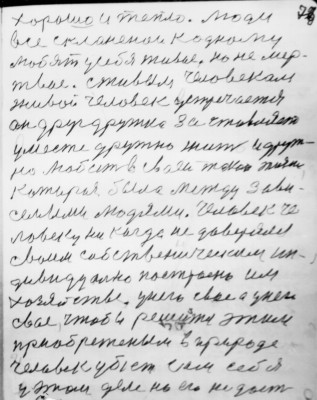 хорошо и тепло. Люди
все склонены к одному
любят у себя живое, но не мер-
твое. С живым человекам
живой человек устречается
он друг дружка заставляет
уместе дружно жить и друж-
но любить в своей такой
которая была между зави-
семыми людями. Человек че
ловеку никогда не доверялся
своим собственическим ин-
дивидуально построеным
хозяйстве, у него свое а у него
свое, чтобы решити этим
приобретеным в природе
человек убил сам себя
у этом деле но его не дост